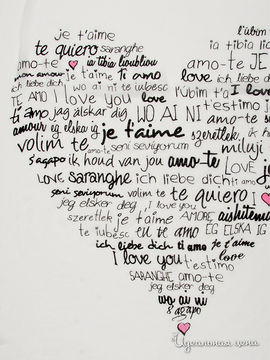 je t'aime
te quiero saranghe l'ùbim t
amo-te ia tibia lioubliou ia tibia li
mon amour je t'aime ti amo amo-te JE
wo ai ni te iubesc love ich liebe dich
TE AMO I love you love l'ùbim t'a I love
ti amo jag älskar dig WO AI NI t'estimo j
amour eg elska ig je t'aime szeretlek,
volim te amo-te seni seviyorum miluji
s'agapo ik houd van jou amo-te
LOVE saranghe ich liebe dich ti amo
seni seviyorum volim te te quiero
jeg elsker deg I love you
szeretlek je t'aime AMORE aishitema
te iubesc eu te amo EG ELSKA IG
ich liebe dich ti amo je t'aime
I love you t'estimo love
SARANGHE amo-te
jeg elsker deg
wo ai ni
s'agapo
Идеальная цена